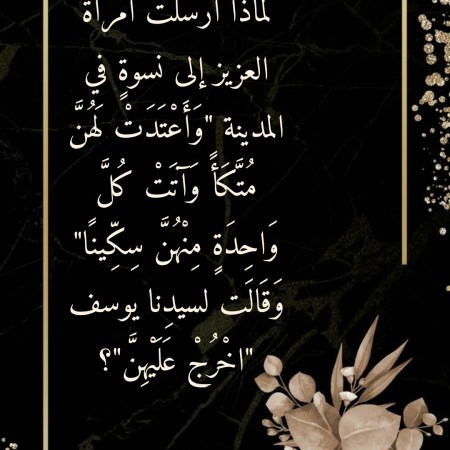 لماذا أرسلت امرأة
العزيز إلى نسوةٍ في
المدينة "وَأَعْتَدَتْ لَهُنَّ
مُتَّكَأً وَآتَتْ كُلَّ
وَاحِدَةٍ مِنْهُنَّ سِكِّينًا"
وَقَالَت لسيدِنا يوسف
"اخْرُجْ عَلَيْهِنَّ"؟